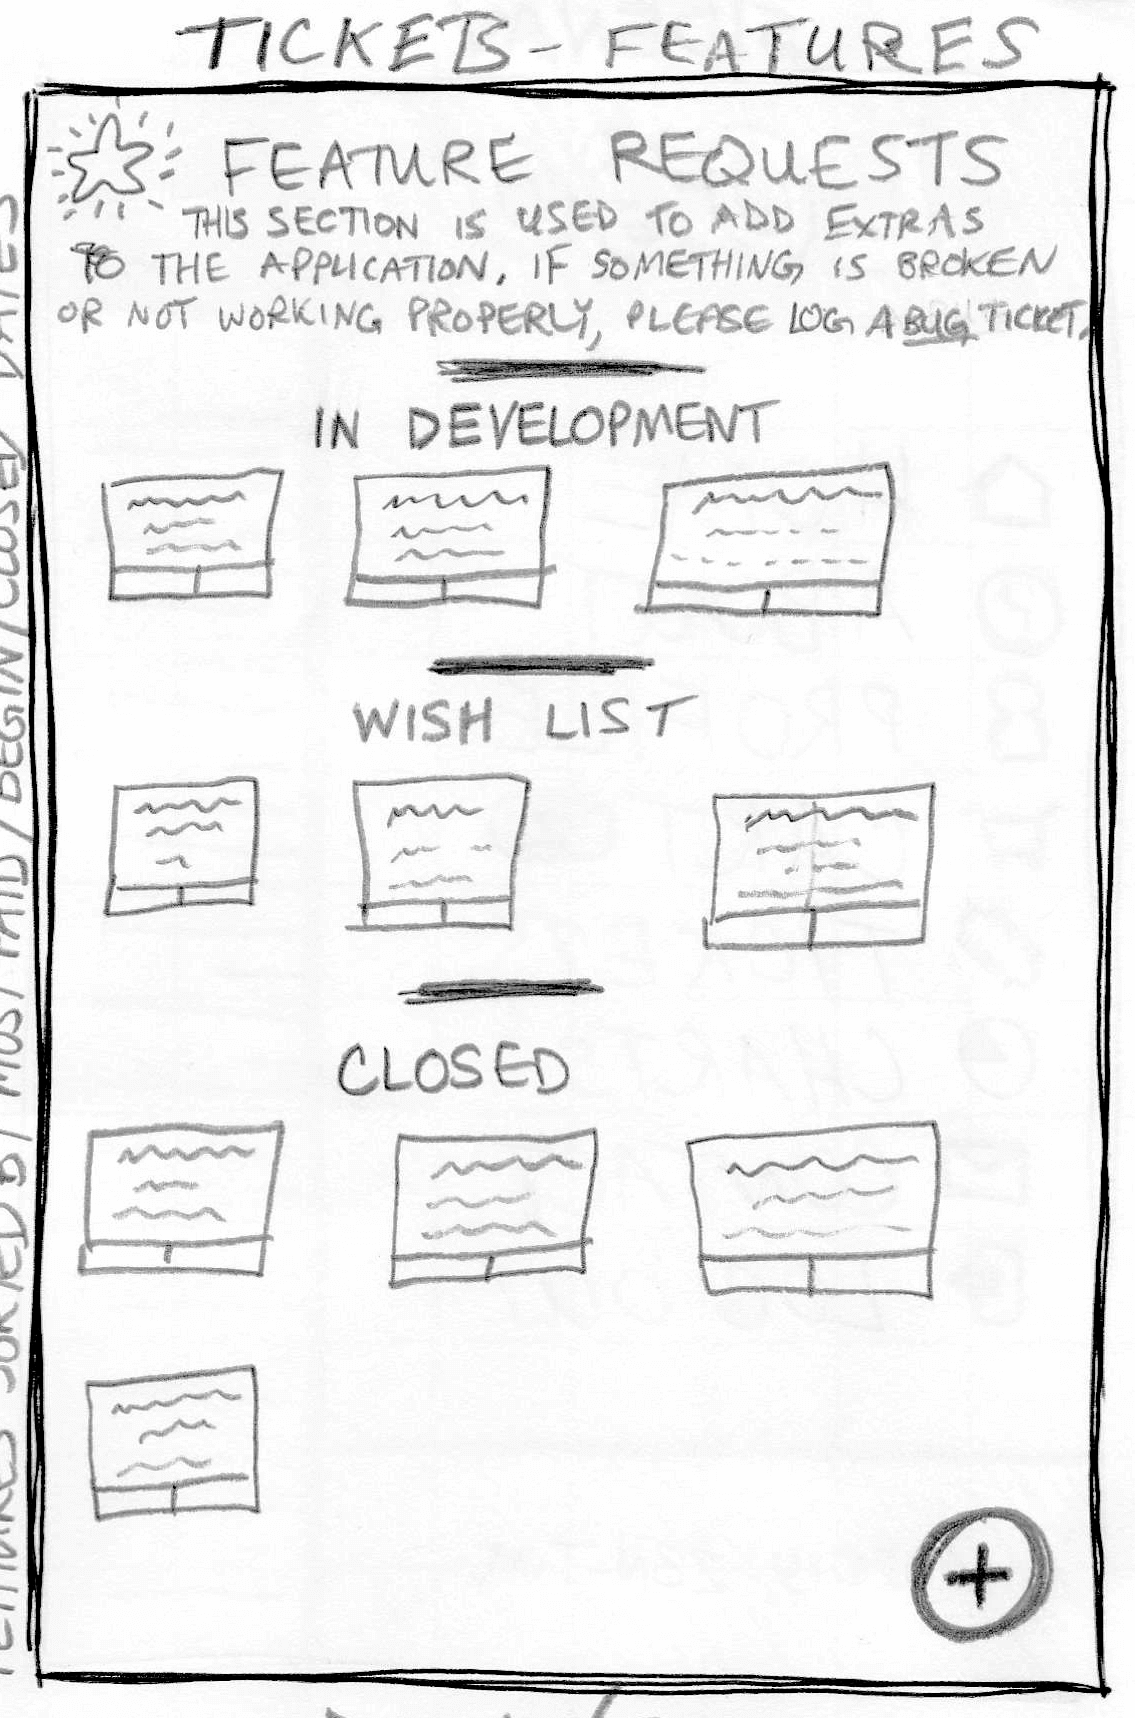 TICKETS - FEATURES
FEATURE REQUESTS
THIS SECTION IS USED TO ADD EXTRAS
TO THE APPLICATION. IF SOMETHING IS BROKEN
OR NOT WORKING PROPERLY, PLEASE LOG A BUG TICKET.
IN DEVELOPMENT
WISH LIST
CLOSED
+
FEATURES SORTED BY MOST PAID / BEGIN / CLOSED DATES